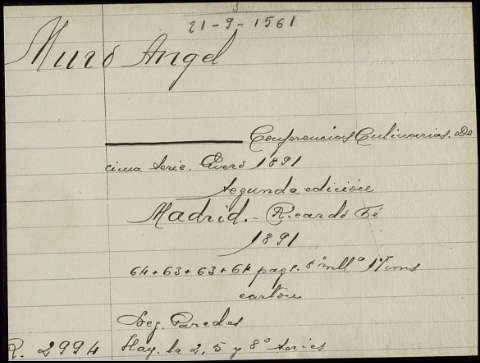 3
21-9-1561
Muro Angel
Conferencias Culinarias. De
cima serie. Enero 1891
Segunda edición
Madrid.- Ricardo Fé
1891
64+63+63+64 pags. 8º mllª 1 Tomo
cartoné
Leg. Paredes
R. 2994 Hay. la 2, 5 y 8ª series